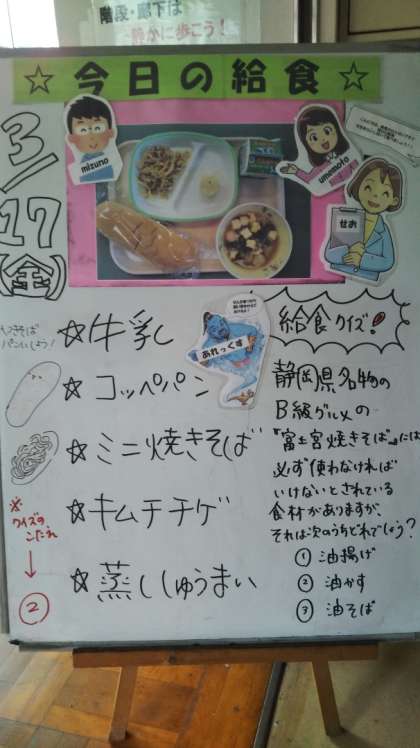 階段・廊下は
静かに歩こう！
☆今日の給食☆
3/17(金)
mizuno
umemoto
せお
☆牛乳
☆コッペパン
☆ミニ焼きそば
☆キムチチゲ
☆蒸ししゅうまい
あれっくす
やきそば
パンにしよう！
※
クイズの
こたえ
↓
②
給食クイズ！
静岡県名物の
B級グルメの
『富士宮焼きそば』には
必ず使わなければ
いけないとされている
食材がありますが、
それは次のうちどれでしょう？
① 油揚げ
② 油かす
③ 油そば